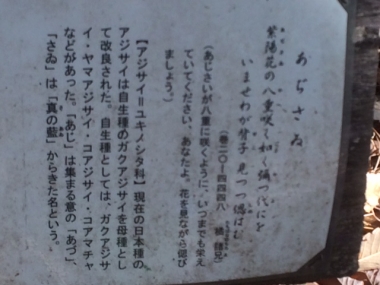 あぢさゐ
紫陽花の八重咲く如く彌つ代にを
いませわが背子見つつ偲ばむ
(巻二〇−四四四八 橘諸兄)
(あじさいが八重に咲くように、いつまでも栄え
ていてください、あなたよ。花を見ながら偲び
ましょう。)
【アジサイ=ユキノシタ科】現在の日本種の
アジサイは自生種のガクアジサイを母種とし
て改良された。自生種としては、ガクアジサ
イ・ヤマアジサイ・コアジサイ・コアマチャ
などがあった。「あじ」は集まる意の「あづ」、
「さゐ」は「真の藍」からきた名という。